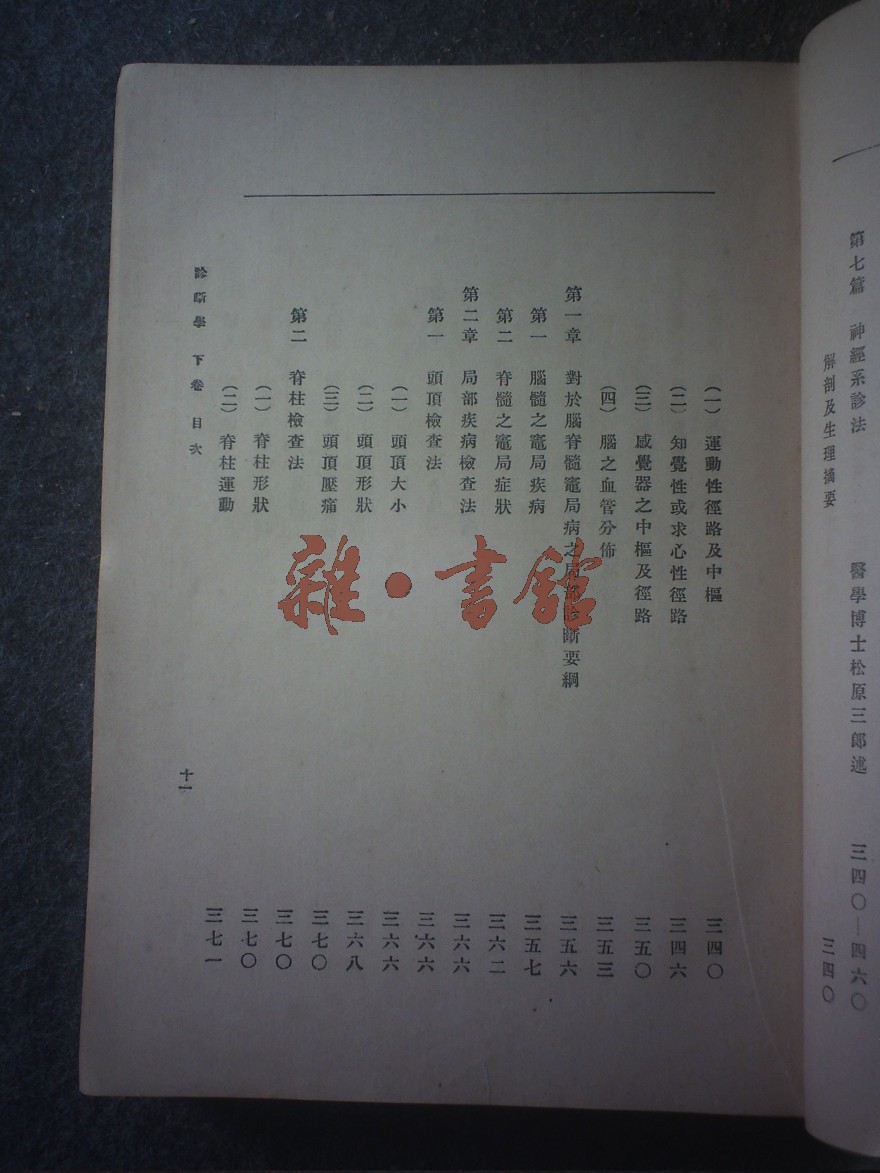 第七篇 神經系診法 醫學博士松原三郎述 三四〇—四六〇
解剖及生理摘要 三四〇
(一) 運動性徑路及中樞 三四〇
(二) 知覺性或求心性徑路 三四六
(三) 感覺器之中樞及徑路 三五〇
(四) 腦之血管分佈 三五三
第一章 對於腦脊髓竈局病之局部診斷要綱 三五六
第一 腦髓之竈局疾病 三五七
第二 脊髓之竈局症狀 三六二
第二章 局部疾病檢查法 三六六
第一 頭頂檢查法 三六六
(一) 頭頂大小 三六六
(二) 頭頂形狀 三六八
(三) 頭頂壓痛 三七〇
第二 脊柱檢查法 三七〇
(一) 脊柱形狀 三七〇
(二) 脊柱運動 三七一
診斷學 下卷 目次 十一
雜·書館